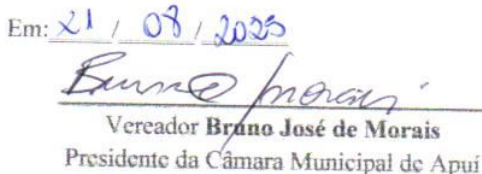 Em: 21 / 08 / 2025
Bruno Morais
Vereador Bruno José de Morais
Presidente da Câmara Municipal de Apuí